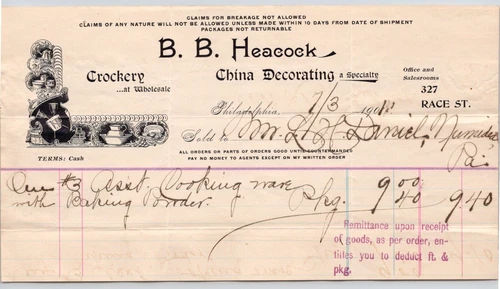 CLAIMS FOR BREAKAGE NOT ALLOWED
CLAIMS OF ANY NATURE WILL NOT BE ALLOWED UNLESS MADE WITHIN 10 DAYS FROM DATE OF SHIPMENT
PACKAGES NOT RETURNABLE
B. B. Heacock
Crockery
...at Wholesale
China Decorating a Specialty
Office and
Salesrooms
327
RACE ST.
Philadelphia, 7/3 190
Sold to Mr. L. H. Daniel,
Pa.
ALL ORDERS OR PARTS OF ORDERS GOOD UNTIL COUNTERMANDED
PAY NO MONEY TO AGENTS EXCEPT ON MY WRITTEN ORDER
TERMS: Cash
One #3 Asst. Cooking ware 9 00
with Baking Powder. Pkg. 40 9 40
Remittance upon receipt
of goods, as per order, en-
titles you to deduct ft. &
pkg.